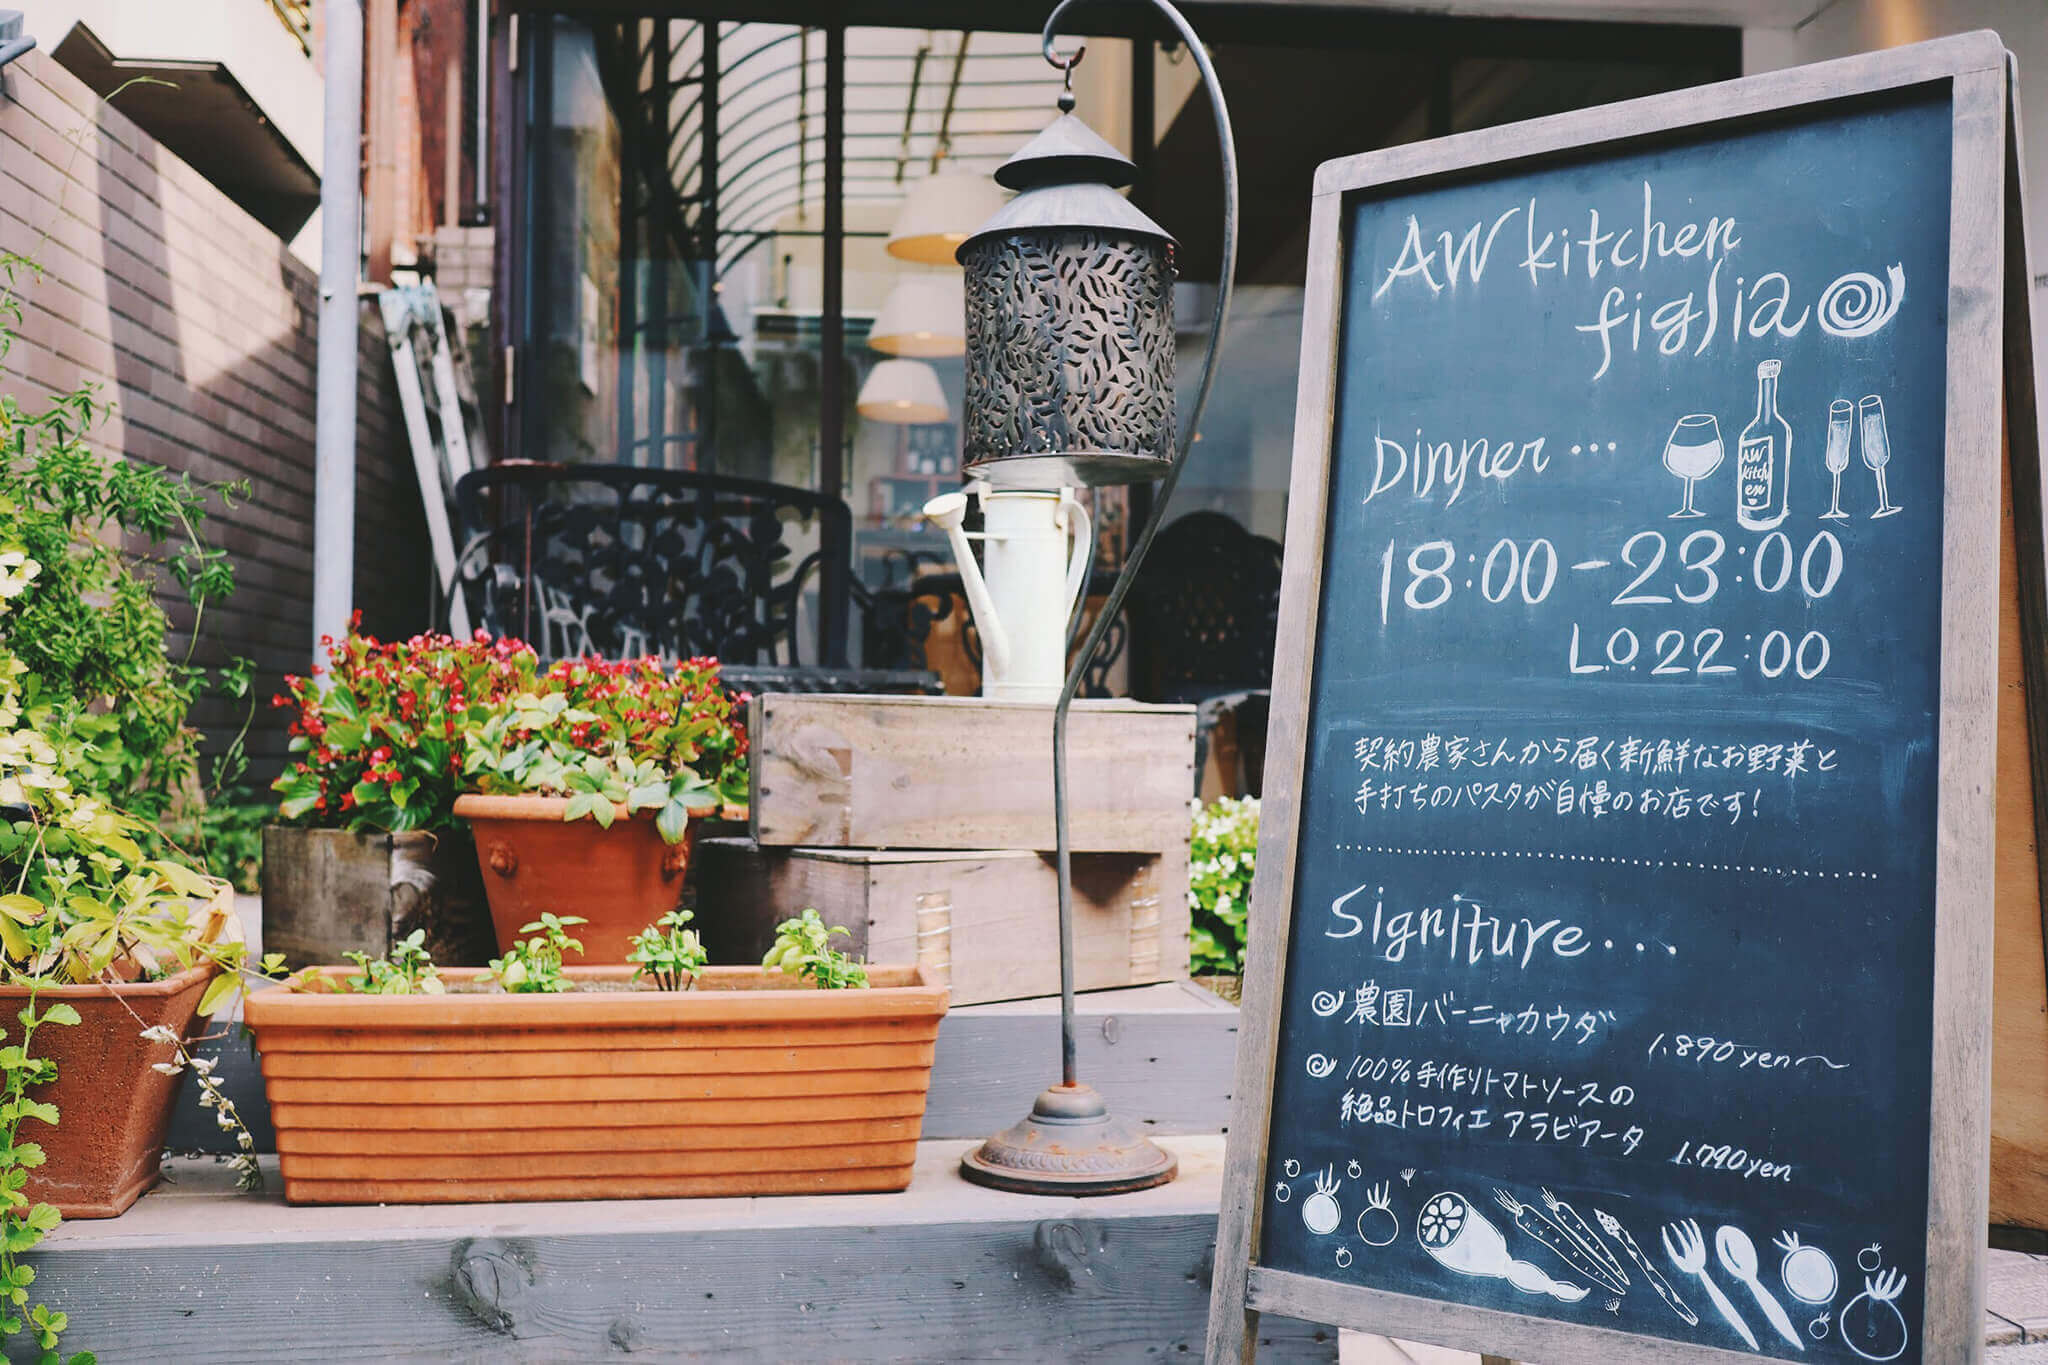 AW kitchen
figlia
Dinner...
AW
kitch
en
18:00-23:00
L.O.22:00
契約農家さんから届く新鮮なお野菜と
手打ちのパスタが自慢のお店です!
Signiture...
農園バーニャカウダ
1.890yen~
100%手作りトマトソースの
絶品トロフィエ アラビアータ
1.790yen